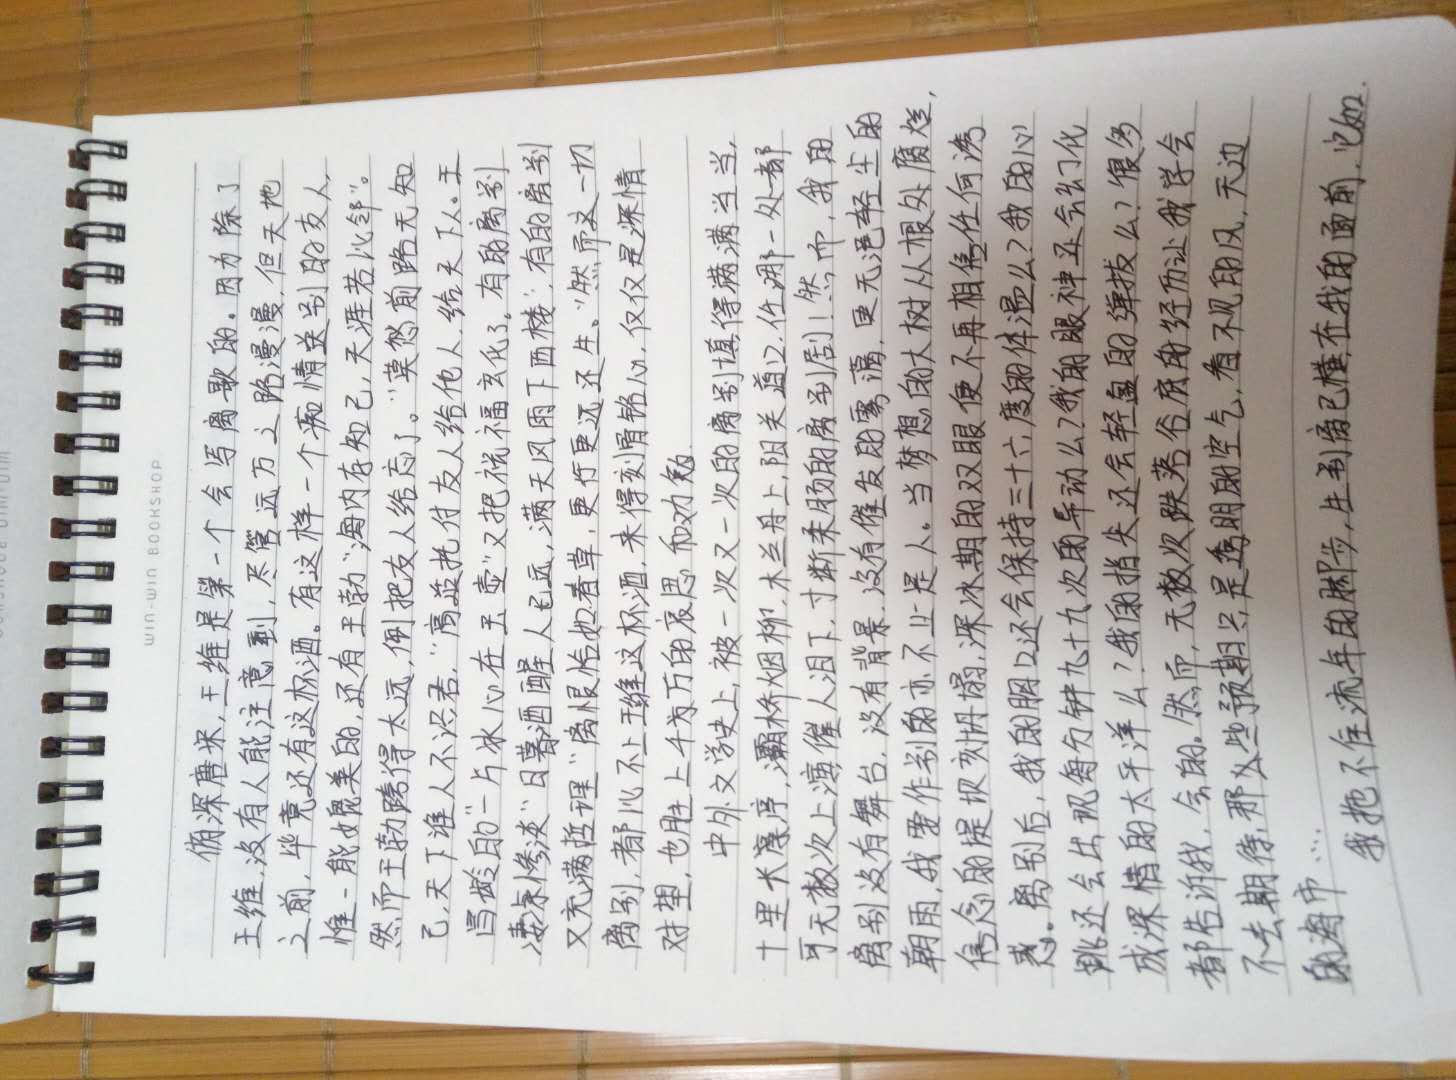 WIN-WIN BOOKSHOP
俯深唐宋,王维是第一个会写离歌的。因为除了
王维,没有人能注意到,尽管远方之路漫漫,但天地
之前,毕竟还有这杯酒。有这样一个痴情送别的友人,
惟一能媲美的,还有王勃"海内存知己,天涯若比邻"。
然而王勃跨得太远,倒把友人给忘了。"莫愁前路无知
己,天下谁人不识君,"高适托付友人给他人给天下人。王
昌龄的"一片冰心在玉壶"又把祝福玄化了。有的离别
凄凉惨淡"日暮酒醒人已远,满天风雨下西楼",有的离别
又充满哲理"离恨恰如春草,更行更远还生。"然而这一切
离别,都比不上王维这杯酒,来得刻骨铭心,仅仅是深情
对望,也胜上千万的哀思和劝勉.
中外文学史上,被一次又一次的离别填得满满当当,
十里长亭序,灞桥烟柳,木兰舟上,阳关道口.任哪一处都
可无数次上演催人泪下,寸断柔肠的离别剧!然而,我的
离别没有舞台,没有背景,没有催发的雾滴,更无浥轻尘的
朝雨,我要作别的亦不止是人。当梦想的大树从根处腐烂,
信念的堤坝刻坍塌,深冰期的双眼便不再相信任何诱
惑。离别后,我的胸口还会保持三十六度的体温么?我的心
跳还会出现每分钟九十九次的导动么?我的眼神还会幻化
成深情的太平洋么?我的指尖还会轻盈的弹拨么?很多
都告诉我,会的。然而,无数次跌落谷底的经历让我学会
不去期待,那些预期只是透明的空气,看不见的风,天边
的海市…
我拖不住流年的脚步,生别离已横在我的面前,比如.